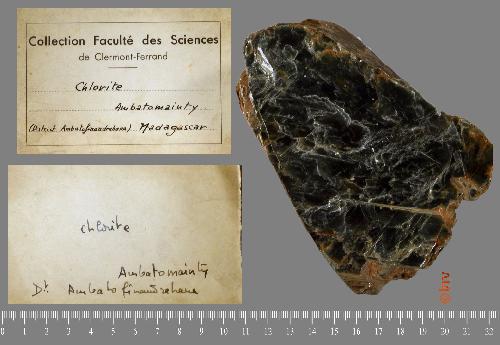 Collection Faculté des Sciences
de Clermont-Ferrand
Chlorite
Ambatomainty
(District Ambatofinandrahana) Madagascar
chlorite
Ambatomainty
Dt. Ambatofinandrahana
© brv
0 1 2 3 4 5 6 7 8 9 10 11 12 13 14 15 16 17 18 19 20 21 22